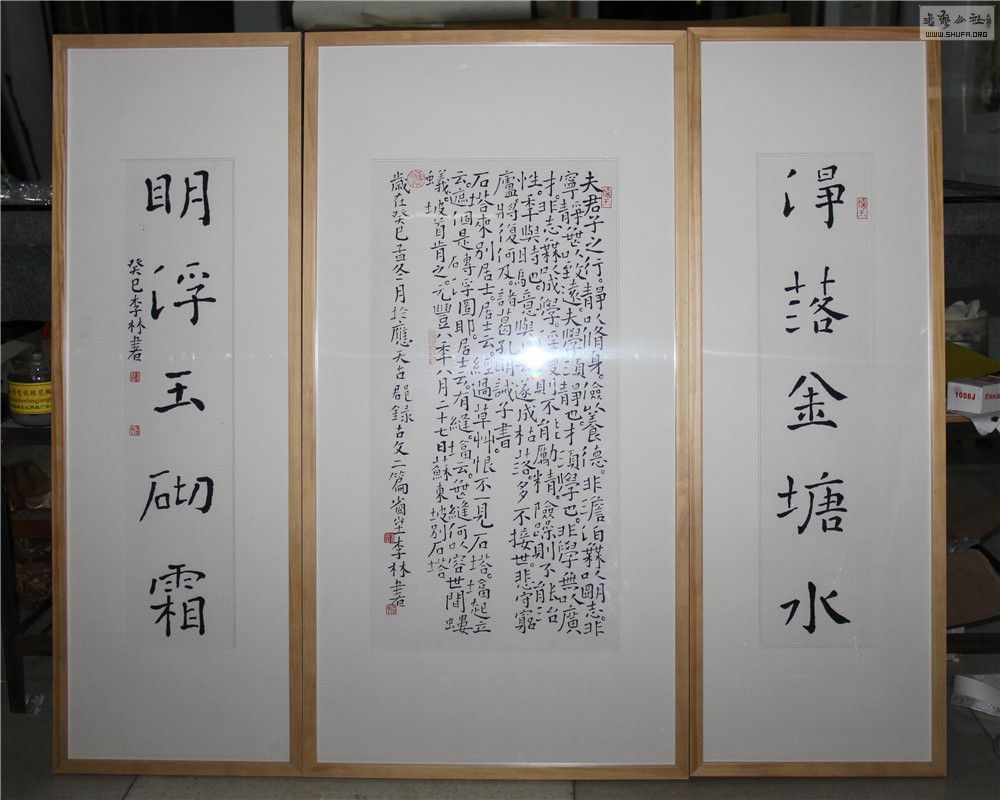 淨落金塘水
夫君子之行。靜以脩身。儉以養德。非澹泊無以明志。非
寧靜無以致遠。夫學須靜也。才須學也。非學無以廣
才。非志無以成學。淫慢則不能勵精。險躁則不能治
性。年與時馳。意與日去。遂成枯落。多不接世。悲守窮
廬。將復何及。諸葛孔明誡子書。
石塔來別居士。居士云。經過草草。恨不一見石塔。塔起立
云。遮個是塼浮圖耶。居士云。有縫。塔云。無縫何以容世間螻
蟻。坡首肯之。元豐八年八月二十七日蘇東坡別石塔
歲在癸巳孟冬月於應天古郡錄古文二篇 李林書
明浮玉砌霜
癸巳李林書
WWW.SHUFA.ORG
1008J